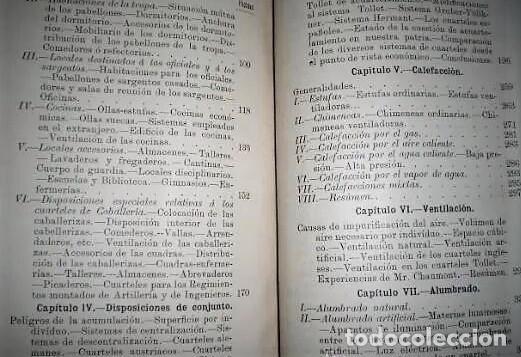 II.—Habitaciones de la tropa.—Situación mútua
de los pabellones.—Dormitorios.—Anchura
del dormitorio.—Accesorios de los dormitorios.
Mobiliario de los dormitorios.—Distribución de los pabellones de la tropa.—
Comedores ó refectorios. 100
III.—Locales destinados á los oficiales y á los
sargentos.—Habitaciones para los oficiales.
Pabellones de sargentos casados.—Comedores
y salas de reunión de los sargentos.—
Oficinas. 118
IV.—Cocinas.—Ollas-estufas.—Cocinas económicas.—Ollas suecas.—Sistemas empleados
en el extranjero.—Edificio de las cocinas.
Ventilación de las cocinas. 133
V.—Locales accesorios.—Almacenes.—Talleres.
—Lavaderos y fregaderos.—Cantinas.—
Cuerpo de guardia.—Locales disciplinarios.
Escuelas y Biblioteca.—Gimnasios.—Enfermerías. 152
VI.—Disposiciones especiales relativas á los
cuarteles de Caballería.—Colocación de las
caballerizas.—Disposición interior de las
caballerizas.—Comederos.—Vallas.—Arrendaderos,
etc.—Ventilación de las caballerizas.
Accesorios de las cuadras.—Distribución
de las caballerizas.—Cuadras-enfermerías.
—Talleres.—Almacenes.—Abrevaderos
—Picaderos.—Cuarteles para los Regimientos
montados de Artillería y de Ingenieros. 170
Capítulo IV.—Disposiciones de conjunto.
Peligros de la acumulación.—Superficie por
individuo.—Sistemas de centralización.—Sistemas
de descentralización.—Cuarteles alemanes.
Cuarteles austriacos.—Cuarteles
Tollet de
al sistema Tollet.—Sistema Gruber-Völkner.
—Sistema Hermant.—Los cuarteles españoles.
—Estado de la cuestión de acuartelamiento
en nuestra patria.—Comparación
de los diversos sistemas de cuarteles desde
el punto de vista económico.—Conclusiones. 196
Capítulo V.—Calefacción.
Generalidades. 259
I.—Estufas.—Estufas ordinarias.—Estufas ventiladoras. 263
II.—Chimeneas.—Chimeneas ordinarias.—Chimeneas
ventiladoras. 271
III.—Calefacción por el gas. 281
IV.—Calefacción por el aire caliente.
V.—Calefacción por el agua caliente.—Baja presión.
Alta presión. 286
VI.—Calefacción por el vapor de agua.
VII.—Calefacciones mixtas.
VIII.—Resúmen.
Capítulo VI.—Ventilación.
Causas de impurificación del aire.—Volúmen de
aire necesario por individuo.—Espacio cúbico.
—Ventilación natural.—Ventilación artificial.
—Ventilación de los cuarteles ingleses.
Ventilación en los cuarteles Tollet.—
Experiencias de Mr. Chaumont.—Resúmen
Capítulo VII.—Alumbrado.
I.—Alumbrado natural.
II.—Alumbrado artificial.—Materias luminosas.
—Aparatos de iluminación.—Comparación
todocoleccion